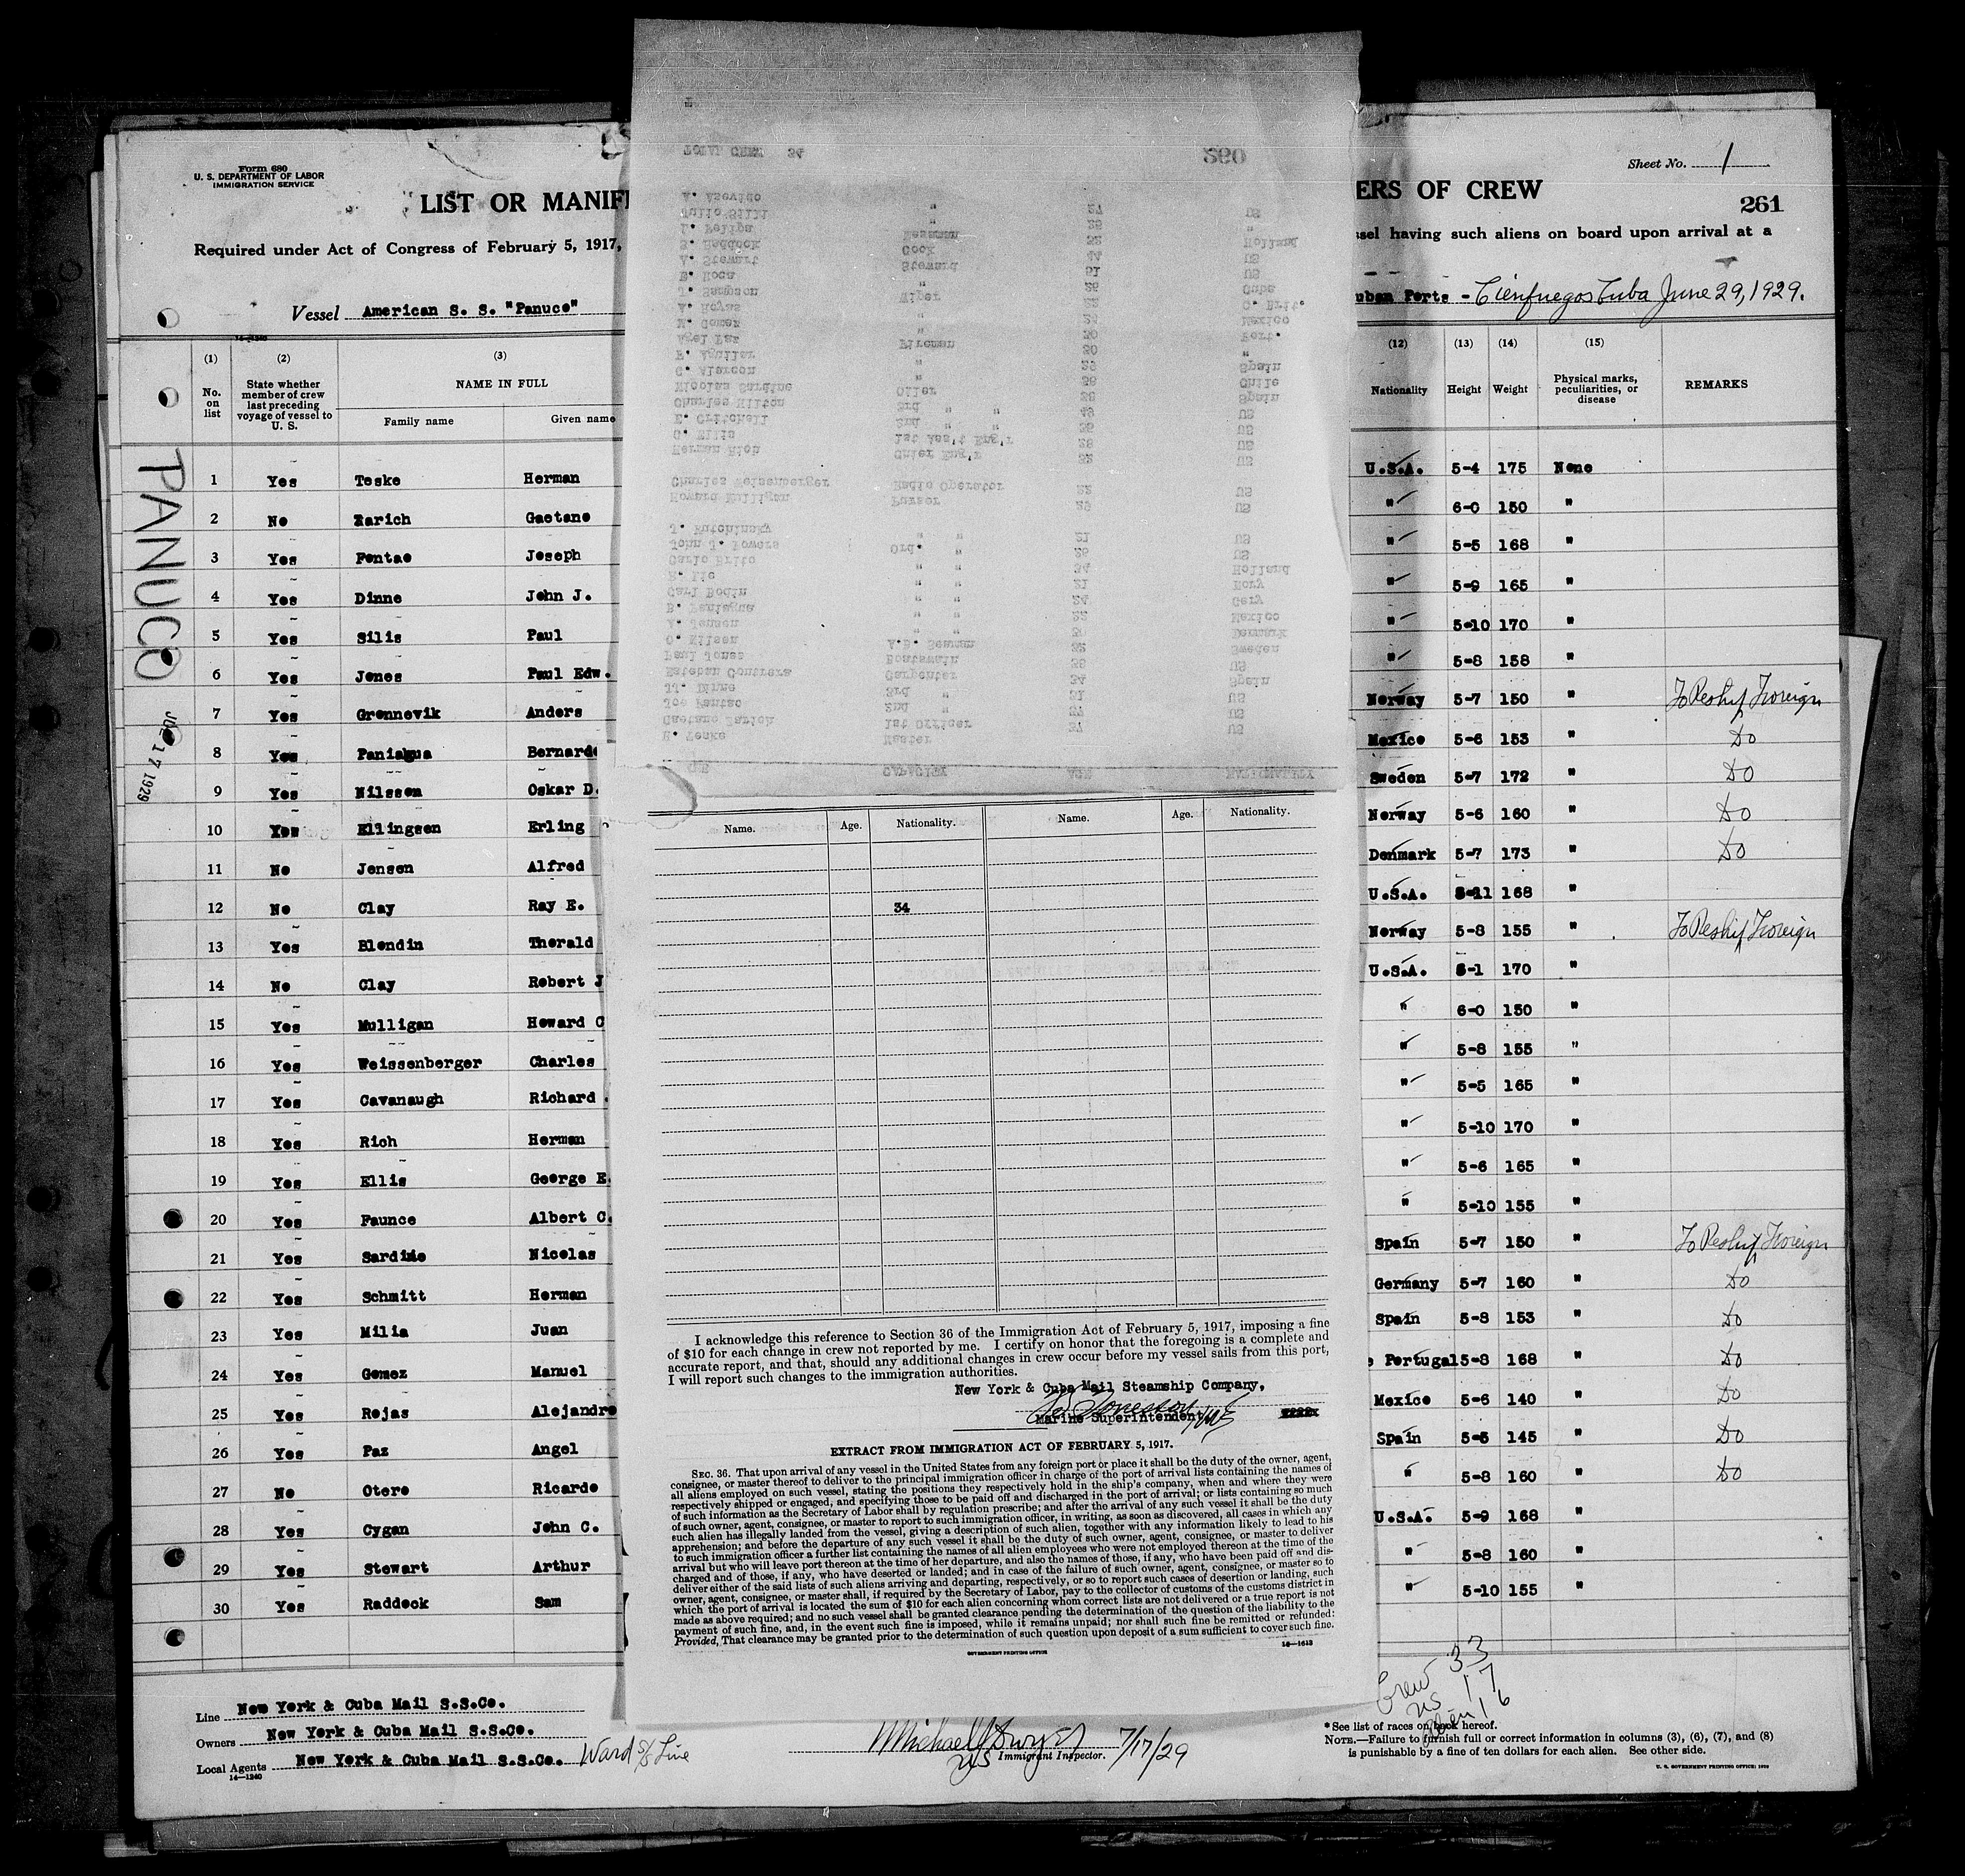 Form 680
U. S. DEPARTMENT OF LABOR
IMMIGRATION SERVICE
Sheet No. 1
LIST OR MANIF
ERS OF CREW
261
Required under Act of Congress of February 5, 1917,
ssel having such aliens on board upon arrival at a
Vessel American S. S. "Panuco"
uban Ports - Cienfuegos Cuba June 29, 1929.
14-1240
(1) (2) (3) (12) (13) (14) (15)
No. on list
State whether member of crew last preceding voyage of vessel to U. S.
NAME IN FULL
Family name Given name
Nationality Height Weight
Physical marks, peculiarities, or disease
REMARKS
PANUCO
JUL 17 1929
1 Yes Teske Herman U.S.A. 5-4 175 None
2 No Zarich Gaetano " 6-0 150 "
3 Yes Fontao Joseph " 5-5 168 "
4 Yes Dinne John J. " 5-9 165 "
5 Yes Silis Paul " 5-10 170 "
6 Yes Jones Paul Edw. " 5-8 158 "
7 Yes Grennevik Anders Norway 5-7 150 " To Reship Foreign
8 Yes Paniagua Bernardo Mexico 5-6 153 " Do
9 Yes Nilssen Oskar D. Sweden 5-7 172 " Do
10 Yes Ellingsen Erling Norway 5-6 160 " Do
11 No Jensen Alfred Denmark 5-7 173 " Do
12 No Clay Ray E. U.S.A. 5-11 168 "
13 Yes Blondin Therald Norway 5-8 155 " To Reship Foreign
14 No Clay Robert J U.S.A. 6-1 170 "
15 Yes Mulligan Howard C " 6-0 150 "
16 Yes Weissenberger Charles " 5-8 155 "
17 Yes Cavanaugh Richard " 5-5 165 "
18 Yes Rich Herman " 5-10 170 "
19 Yes Ellis George E. " 5-6 165 "
20 Yes Faunce Albert C. " 5-10 155 "
21 Yes Sardine Nicolas Spain 5-7 150 " To Reship Foreign
22 Yes Schmitt Herman Germany 5-7 160 " Do
23 Yes Milia Juan Spain 5-8 153 " Do
24 Yes Gomez Manuel Portugal 5-8 168 " Do
25 Yes Rojas Alejandro Mexico 5-6 140 " Do
26 Yes Paz Angel Spain 5-6 145 " Do
27 No Otero Ricardo " 5-8 160 " Do
28 Yes Cygan John C. U.S.A. 5-9 168 "
29 Yes Stewart Arthur " 5-8 160 "
30 Yes Raddock Sam " 5-10 155 "
Crew 33
US 17
Alien 16
Line New York & Cuba Mail S.S.Co.
Owners New York & Cuba Mail S.S.Co.
Local Agents New York & Cuba Mail S.S.Co. Ward S/S Line
14-1240
Michael J Dwyer
US Immigrant Inspector. 7/17/29
*See list of races on back hereof.
NOTE.—Failure to furnish full or correct information in columns (3), (6), (7), and (8)
is punishable by a fine of ten dollars for each alien. See other side.
U. S. GOVERNMENT PRINTING OFFICE: 1929
CAPACITY AGE NATIONALITY
H. Teske Master 37 US
Gaetano Zarich 1st Officer 37 US
Joe Fantao 2nd " 31 US
JJ. Dinne 3rd " 34 US
Esteban Contrera Carpenter 38 Spain
Paul Jones Boatswain 32 US
O. Nilsen A.B. Seaman 30 Sweden
A. Jensen " " 22 Denmark
B. Paniagua " " 24 Mexico
Carl Bodin " " 21 Gery
R. Lie " " 34 Norv
Carlo Brito " " 26 Holland
John J. Powers Ord. " 21 US
J. Hutchinsky " "
Howard Mulligan Purser 29 US
Charles Weisenberger Radio Operator 22 US
Herman Rich Chief Eng'r 32 US
G. Ellis 1st Ass't Eng'r 28 US
E. Critchell 2nd " " 36 US
Charles Hilton 3rd " " 49 US
Nicolas Sardine Oiler 38 Spain
G. Alarcon " 36 Chile
F. Aguilar " 29 Spain
Agel Paz Fireman 30 "
M. Gomez " 30 Port.
A. Reyas " 24 Mexico
J. Sampson Wiper 22 G. Brit.
E. Roca " 26 Cuba
A. Stewart Steward 51 US
S. Raddock Cook 44 US
L. Felipa Messman 32 Holland
Julio Silli " 28 "
A. Asevido " 27 US
TOTAL CREW 34
260
Name. Age. Nationality. Name. Age. Nationality.
34
I acknowledge this reference to Section 36 of the Immigration Act of February 5, 1917, imposing a fine
of $10 for each change in crew not reported by me. I certify on honor that the foregoing is a complete and
accurate report, and that, should any additional changes in crew occur before my vessel sails from this port,
I will report such changes to the immigration authorities.
New York & Cuba Mail Steamship Company,
Marine Superintendent
EXTRACT FROM IMMIGRATION ACT OF FEBRUARY 5, 1917.
SEC. 36. That upon arrival of any vessel in the United States from any foreign port or place it shall be the duty of the owner, agent,
consignee, or master thereof to deliver to the principal immigration officer in charge of the port of arrival lists containing the names of
all aliens employed on such vessel, stating the positions they respectively hold in the ship's company, when and where they were
respectively shipped or engaged, and specifying those to be paid off and discharged in the port of arrival; or lists containing so much
of such information as the Secretary of Labor shall by regulation prescribe; and after the arrival of any such vessel it shall be the duty
of such owner, agent, consignee, or master to report to such immigration officer, in writing, as soon as discovered, all cases in which any
such alien has illegally landed from the vessel, giving a description of such alien, together with any information likely to lead to his
apprehension; and before the departure of any such vessel it shall be the duty of such owner, agent, consignee, or master to deliver
to such immigration officer a further list containing the names of all alien employees who were not employed thereon at the time of the
arrival but who will leave port thereon at the time of her departure, and also the names of those, if any, who have been paid off and dis-
charged and of those, if any, who have deserted or landed; and in case of the failure of such owner, agent, consignee, or master so to
deliver either of the said lists of such aliens arriving and departing, respectively, or so to report such cases of desertion or landing, such
owner, agent, consignee, or master shall, if required by the Secretary of Labor, pay to the collector of customs of the customs district in
which the port of arrival is located the sum of $10 for each alien concerning whom correct lists are not delivered or a true report is not
made as above required; and no such vessel shall be granted clearance pending the determination of the question of the liability to the
payment of such fine, and, in the event such fine is imposed, while it remains unpaid; nor shall such fine be remitted or refunded:
Provided, That clearance may be granted prior to the determination of such question upon deposit of a sum sufficient to cover such fine.
GOVERNMENT PRINTING OFFICE
14—1613